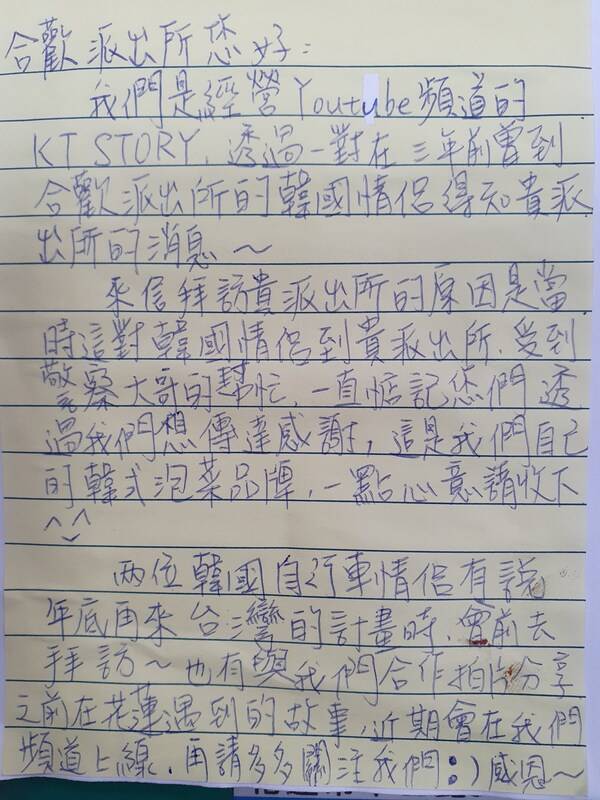 合歡派出所您好:
我們是經營Youtube頻道的
KT STORY, 透過一對在三年前曾到
合歡派出所的韓國情侶得知貴派
出所的消息~
來信拜訪貴派出所的原因是當
時這對韓國情侶到貴派出所, 受到
警察大哥的幫忙, 一直惦記您們透
過我們想傳達感謝, 這是我們自己
的韓式泡菜品牌, 一點心意請收下
^‿^
兩位韓國自行車情侶有說
年底再來台灣的計畫時, 會前去
拜訪~也有與我們合作拍片分享
之前在花蓮遇到的故事, 近期會在我們
頻道上線, 再請多多關注我們:)感恩~